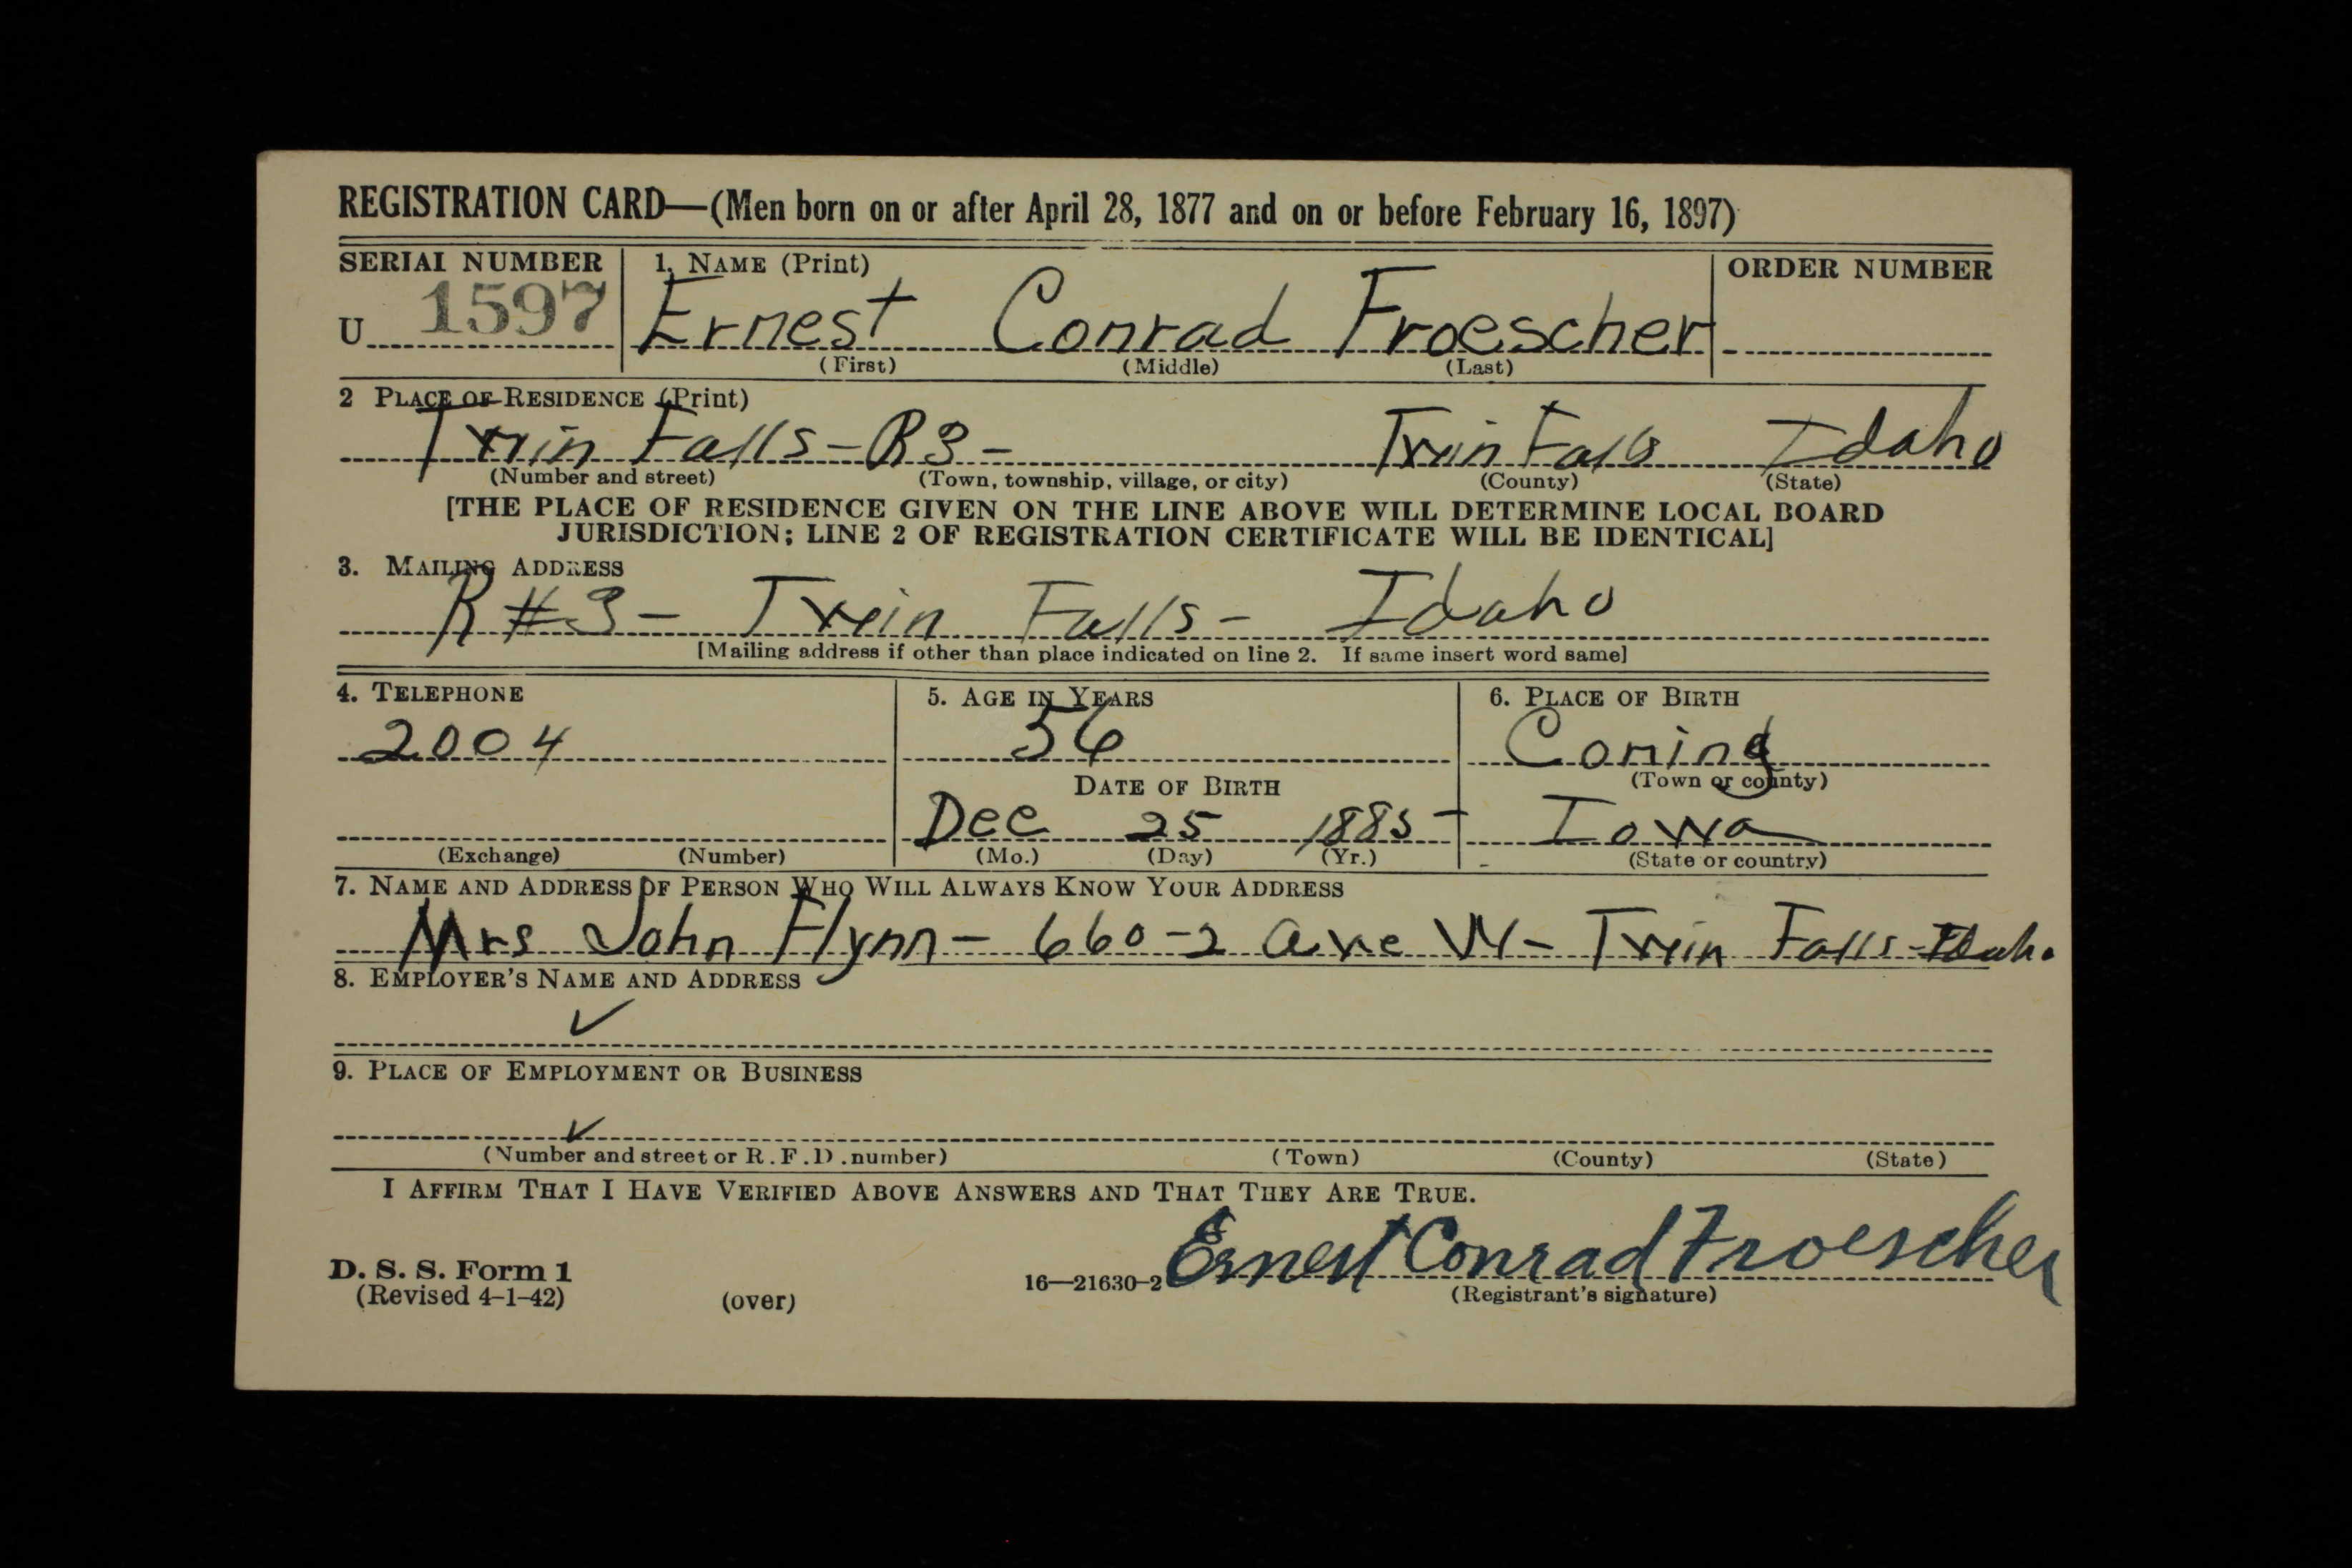 REGISTRATION CARD—(Men born on or after April 28, 1877 and on or before February 16, 1897)
SERIAL NUMBER 1. NAME (Print) ORDER NUMBER
U 1597 Ernest Conrad Froescher
(First) (Middle) (Last)
2 PLACE OF RESIDENCE (Print)
Twin Falls - R3 - Twin Falls Idaho
(Number and street) (Town, township, village, or city) (County) (State)
[THE PLACE OF RESIDENCE GIVEN ON THE LINE ABOVE WILL DETERMINE LOCAL BOARD
JURISDICTION; LINE 2 OF REGISTRATION CERTIFICATE WILL BE IDENTICAL]
3. MAILING ADDRESS
R #3 - Twin Falls - Idaho
[Mailing address if other than place indicated on line 2. If same insert word same]
4. TELEPHONE 5. AGE IN YEARS 6. PLACE OF BIRTH
2004 56 Corning
(Town or county)
DATE OF BIRTH
Dec 25 1885 - Iowa
(Exchange) (Number) (Mo.) (Day) (Yr.) (State or country)
7. NAME AND ADDRESS OF PERSON WHO WILL ALWAYS KNOW YOUR ADDRESS
Mrs John Flynn - 660-2 ave W - Twin Falls - Idaho
8. EMPLOYER'S NAME AND ADDRESS
✓
9. PLACE OF EMPLOYMENT OR BUSINESS
✓
(Number and street or R. F. D. number) (Town) (County) (State)
I AFFIRM THAT I HAVE VERIFIED ABOVE ANSWERS AND THAT THEY ARE TRUE.
D. S. S. Form 1 16—21630-2 Ernest Conrad Froescher
(Revised 4-1-42) (over) (Registrant's signature)